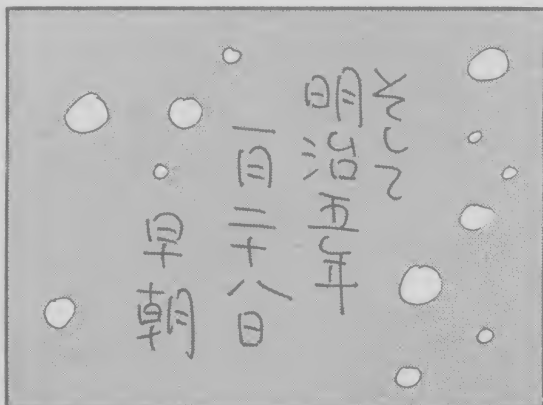 そして
明治五年
一月二十八日
早朝